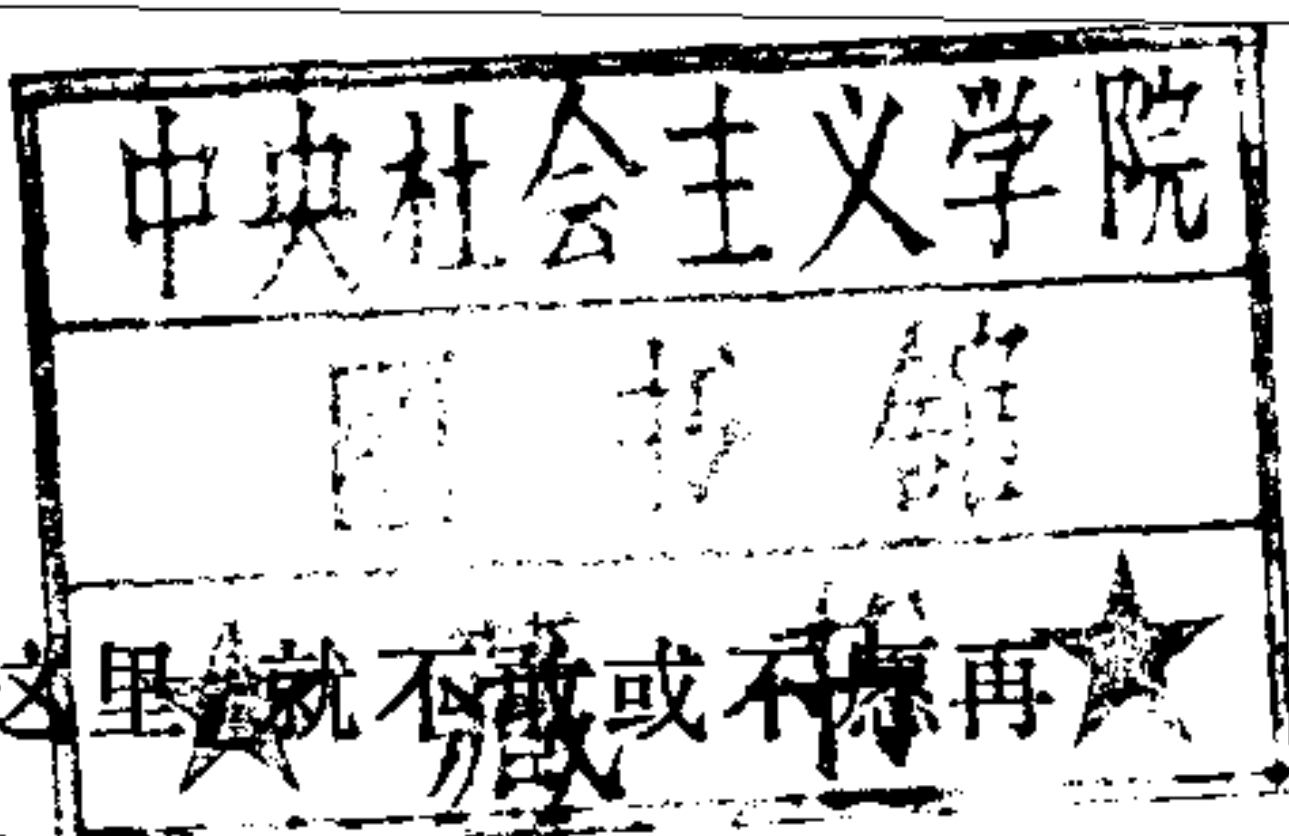 中央社会主义学院
图书馆
这里 就不敢或不愿再
藏书